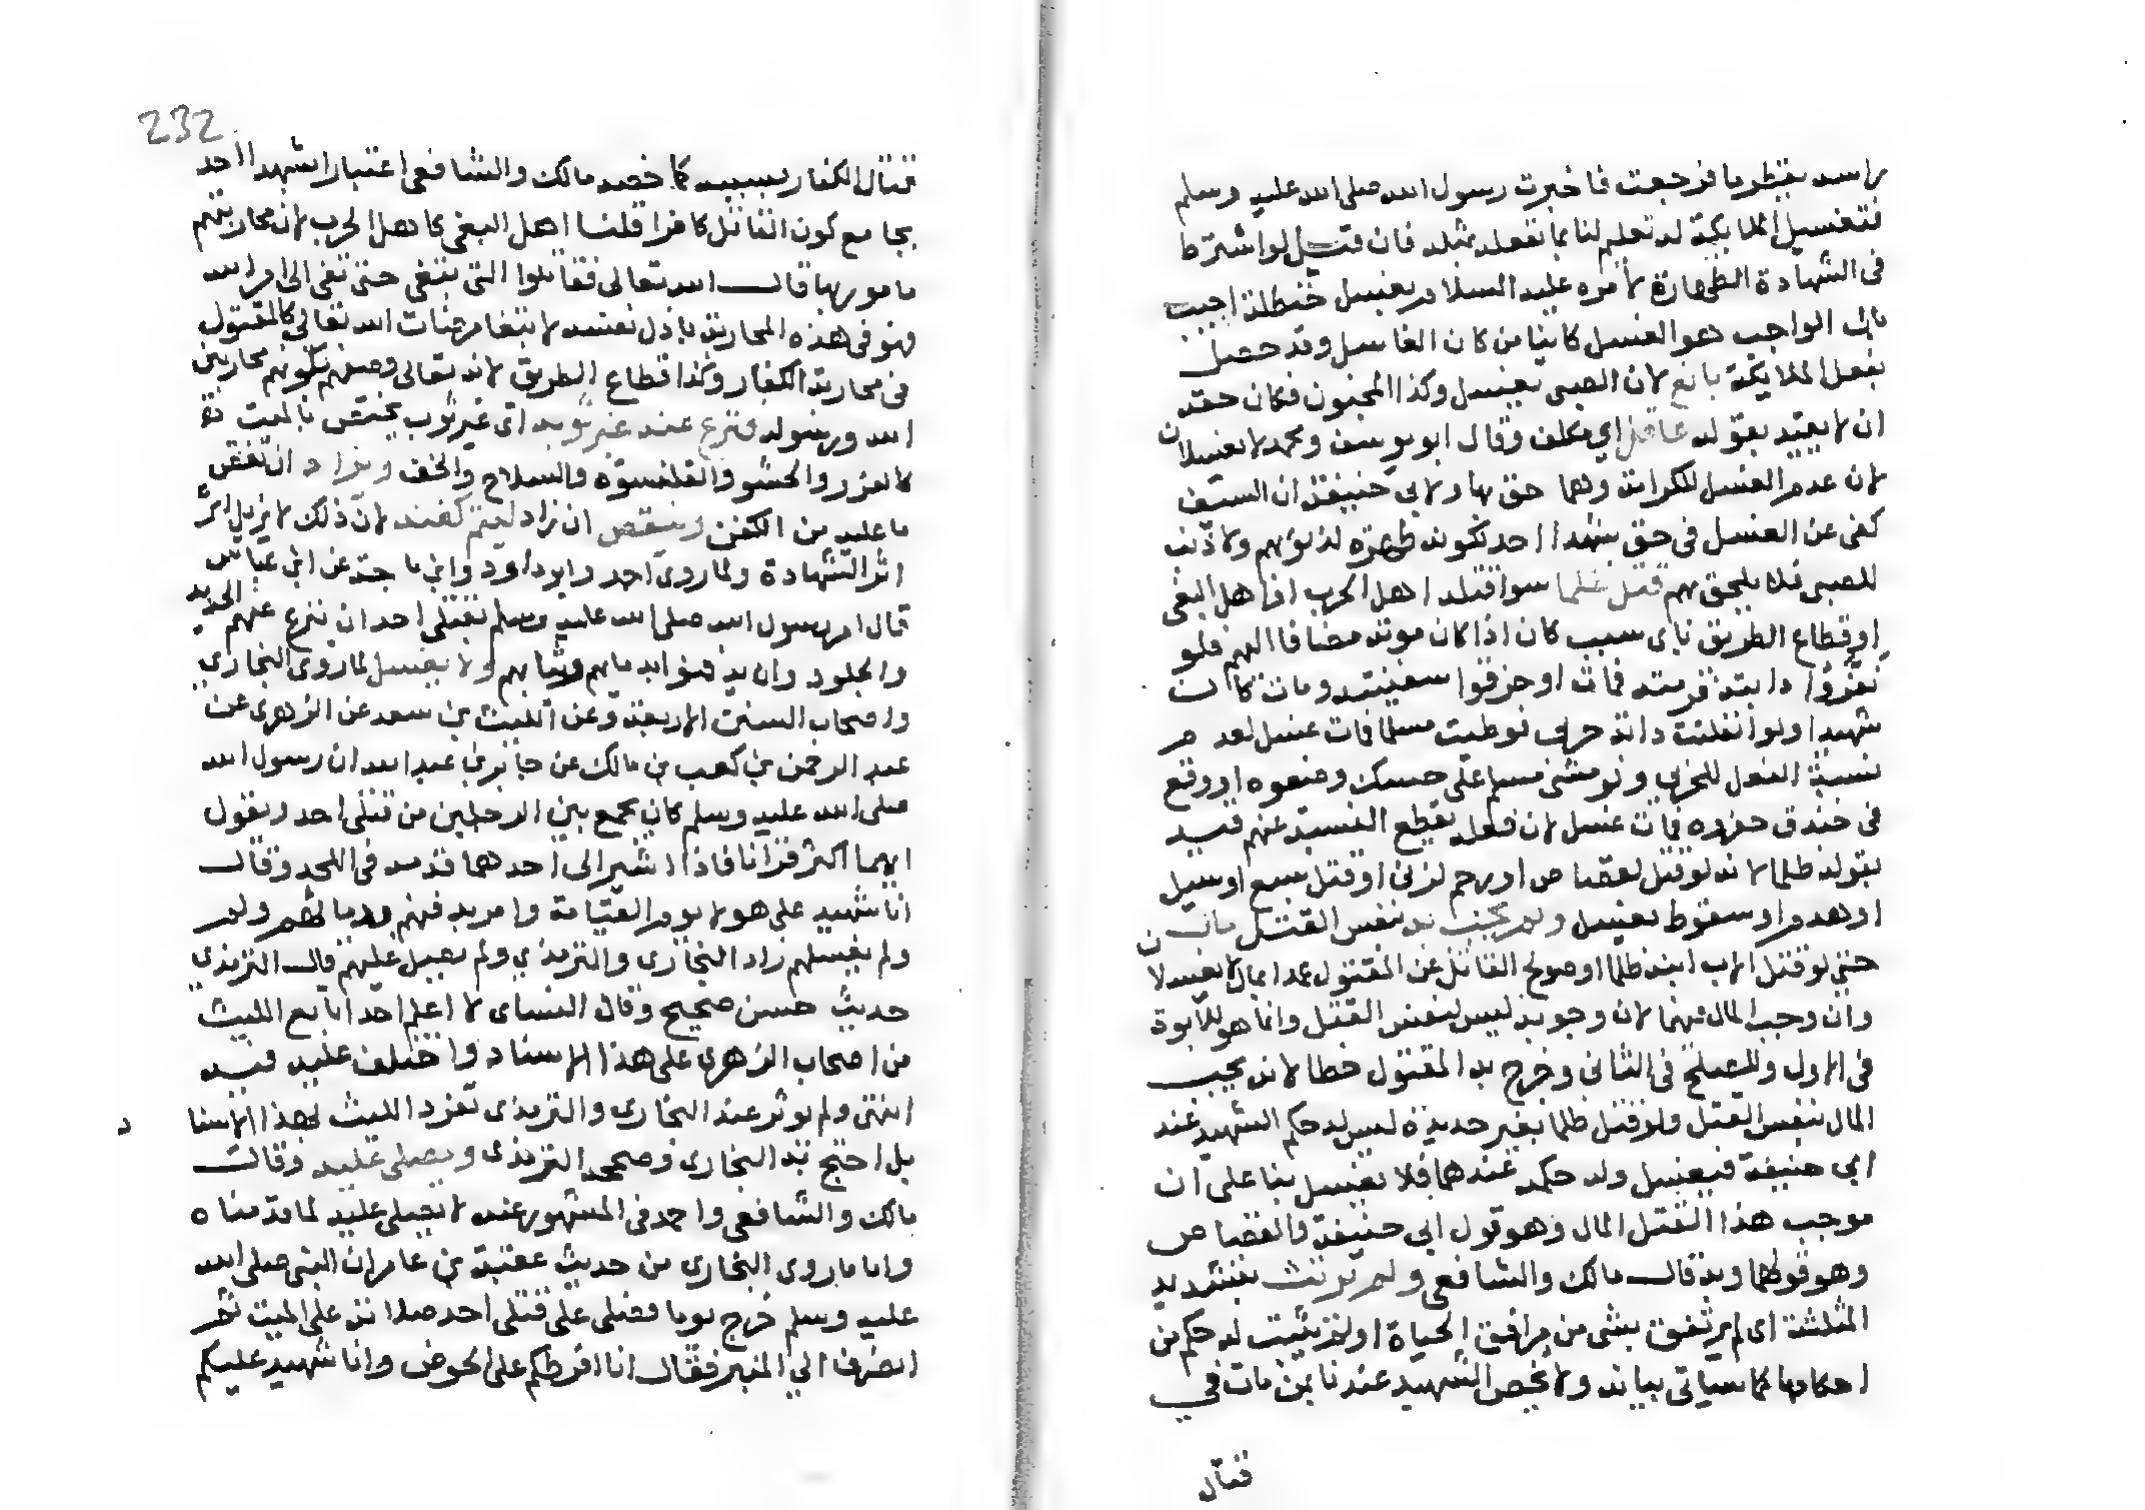 راسه يقطر ما فرجعت فاخبرت رسول الله صلى الله عليه وسلم
فتغسيل الملايكة له تعليم لنا بما نفعله بمثله فان قيل لو اشترط
في الشهادة الطهارة لأمره عليه السلام بغسل حنظلة اجيب
بان الواجب هو الغسل كاينا من كان الغاسل وقد حصل
بفعل الملايكة بالغ لان الصبي يغسل وكذا المجنون فكان حقه
ان يقيد بقوله عاقل اي مكلف وقال ابو يوسف ومحمد لا يغسلان
لان عدم الغسل للكرامة وهما حق بها ولابي حنيفة ان السيف
كفى عن الغسل في حق شهدا احد لكونه طهرة لذنوبهم ولا ذنب
للصبي فلا يلحق بهم قتل ظلما سوا قتله اهل الحرب او اهل البغي
او قطاع الطريق باي سبب كان اذا كان موته مضافا اليهم فلو
نفروا دابته فرمته فمات او حرقوا سفينته ومات كان
شهيدا ولو انفلتت دابة حربي فوطيت مسلما فمات غسل لعدم
نسبة الفعل للحربي ولو مشى مسلم على حسك وضعوه او وقع
في خندق حفروه فمات غسل لان فعله يقطع النسبة عنهم قيد
بقوله ظلما لانه لو قتل لقصاص او رجم لزنى او قتل سبع او سيل
او هدم او سقوط يغسل ولم يجب به بنفس القتل مال
حتى لو قتل الاب ابنه ظلما او صولح القاتل عن المقتول عمدا بمال لا يغسلان
وان وجب المال فيهما لان وجوبه ليس لنفس القتل وانما هو للابوة
في الاول وللصلح في الثاني وخرج به المقتول خطا لانه يجب
المال بنفس القتل ولو قتل ظلما بغير حديدة ليس له حكم الشهيد عند
ابي حنيفة فيغسل وله حكمه عندهما فلا يغسل بنا على ان
موجب هذا القتل المال وهو قول ابي حنيفة والقصاص
وهو قولهما وبه قال مالك والشافعي ولم يرتث بتشديد
المثلثة اي لم يرتفق بشي من مرافق الحياة او لم يثبت له حكم من
احكامها كما سياتي بيانه ولا يخص الشهيد عندنا بمن مات في
قتال
232
قتال الكفار بسببه كما خصه مالك والشافعي اعتبارا بشهدا احد
بجامع كون القاتل كافرا قلنا اهل البغي كاهل الحرب لان محاربتهم
مامور بها قال الله تعالى فقاتلوا التي تبغي حتى تفي الى امر الله
فهو في هذه المحاربة باذل نفسه لابتغا مرضات الله تعالى كالمقتول
في محاربة الكفار وكذا قطاع الطريق لانه تعالى وصفهم بكونهم محاربين
الله ورسوله فنزع عنه غير ثوبه اي غير ثوب يختص بالميت
كالفرو والحشو والقلنسوة والسلاح والخف ويزاد ان نقص
ما عليه من الكفن وينقص ان زاد ليتم كفنه لان ذلك لا يزيل اثر
اثر الشهادة ولما روى احمد وابو داود وابن ماجة عن ابن عباس
قال امر رسول الله صلى الله عليه وسلم بقتلى احد ان ينزع عنهم الحديد
والجلود وان يدفنوا بدمايهم وثيابهم ولا يغسل لما روى البخاري
واصحاب السنن الاربعة وعن الليث بن سعد عن الزهري عن
عبد الرحمن بن كعب بن مالك عن جابر بن عبد الله ان رسول الله
صلى الله عليه وسلم كان يجمع بين الرجلين من قتلى احد ويقول
ايهما اكثر قرانا فاذا اشير الى احدهما قدمه في اللحد وقال
انا شهيد على هولا يوم القيامة وامر بدفنهم بدمايهم ولم
ولم يغسلهم زاد البخاري والترمذي ولم يصل عليهم قال الترمذي
حديث حسن صحيح وقال النساي لا اعلم احدا تابع الليث
من اصحاب الزهري على هذا الاسناد واختلف عليه فيه
انتهى ولم يوثر عند البخاري والترمذي تفرد الليث بهذا الاسناد
بل احتج به البخاري وصححه الترمذي ويصلى عليه وقال
مالك والشافعي واحمد في المشهور عنه لا يصلى عليه لما قدمناه
واما ما روى البخاري من حديث عقبة بن عامر ان النبي صلى الله
عليه وسلم خرج يوما فصلى على قتلى احد صلاته على الميت ثم
انصرف الى المنبر فقال انا افرطكم على الحوض وانا شهيد عليكم